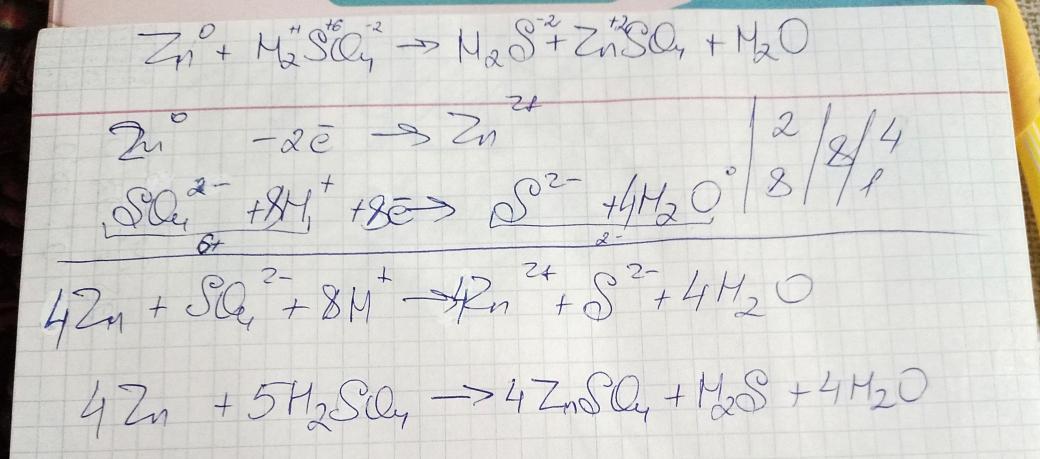 Zn⁰ + H₂⁺¹S⁺⁶O₄⁻² → H₂S⁻² + Zn⁺²SO₄ + H₂O
Zn⁰ -2ē → Zn²⁺ | 2 | 8 | 4
SO₄²⁻ +8H⁺ +8ē → S²⁻ +4H₂O⁰ | 8 | 1
6+ 2-
4Zn + SO₄²⁻ + 8H⁺ → 4Zn²⁺ + S²⁻ + 4H₂O
4Zn + 5H₂SO₄ → 4ZnSO₄ + H₂S + 4H₂O